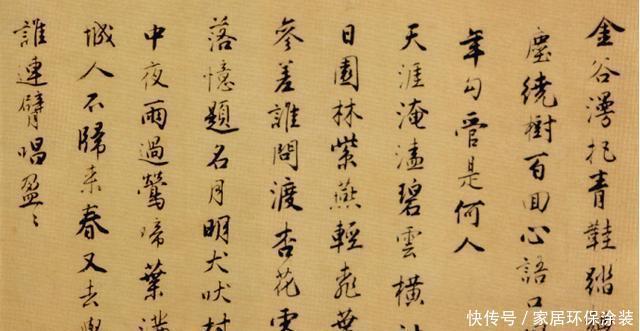 金谷漫把青鞋踏
塵繞樹百回心語口
年勾管是何人
天涯淹溘碧雲橫社
日園林紫燕輕桃葉
參差誰問渡杏花零
落憶題名月明犬吠村
中夜雨過鶯啼葉滿
城人不歸來春又去與
誰連臂唱盈盈
快传号／家居环保涂装